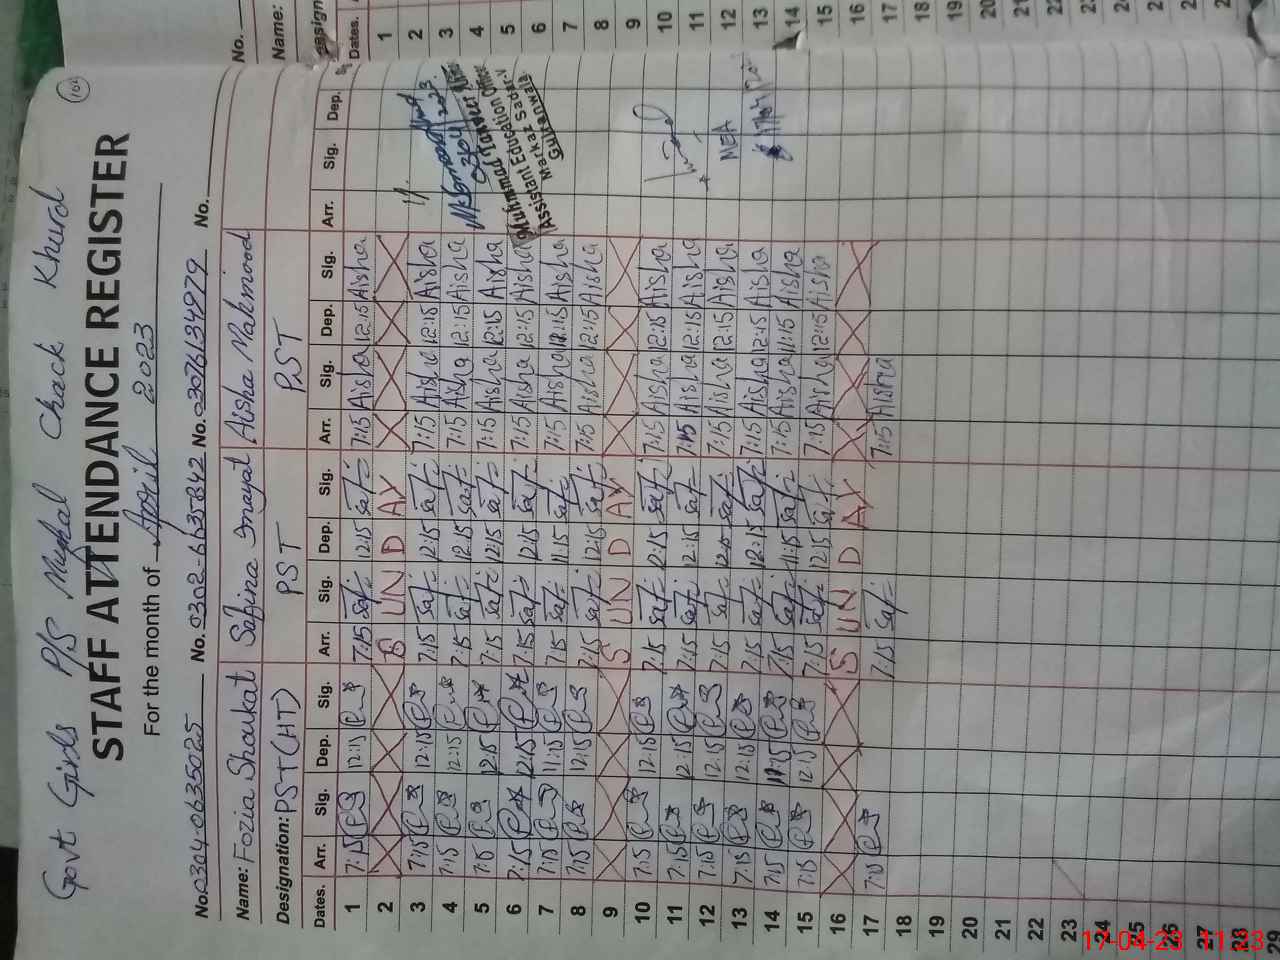 Govt Girls P/S Mughal Chack Khurd
STAFF ATTENDANCE REGISTER
For the month of April 2023
No. 0304-0635025 No. 0302-6635842 No. 03076134979 No.
Name: Fozia Shaukat Safina Inayat Aisha Mahmood
Designation: PST (HT) PST PST
Dates. Arr. Sig. Dep. Sig. Arr. Sig. Dep. Sig. Arr. Sig. Dep. Sig. Arr. Sig. Dep.
1 7:15 12:15 7:15 Saf 12:15 Saf 7:15 Aisha 12:15 Aisha
2 S U N D A Y
3 7:15 12:15 7:15 Saf 12:15 Saf 7:15 Aisha 12:15 Aisha
4 7:15 12:15 7:15 Saf 12:15 Saf 7:15 Aisha 12:15 Aisha
5 7:15 12:15 7:15 Saf 12:15 Saf 7:15 Aisha 12:15 Aisha
6 7:15 12:15 7:15 Saf 12:15 Saf 7:15 Aisha 12:15 Aisha
7 7:15 11:15 7:15 Saf 11:15 Saf 7:15 Aisha 11:15 Aisha
8 7:15 12:15 7:15 Saf 12:15 Saf 7:15 Aisha 12:15 Aisha
9 S U N D A Y
10 7:15 12:15 7:15 Saf 12:15 Saf 7:15 Aisha 12:15 Aisha
11 7:15 12:15 7:15 Saf 12:15 Saf 7:15 Aisha 12:15 Aisha
12 7:15 12:15 7:15 Saf 12:15 Saf 7:15 Aisha 12:15 Aisha
13 7:15 12:15 7:15 Saf 12:15 Saf 7:15 Aisha 12:15 Aisha
14 7:15 11:15 7:15 Saf 11:15 Saf 7:15 Aisha 11:15 Aisha
15 7:15 12:15 7:15 Saf 12:15 Saf 7:15 Aisha 12:15 Aisha
16 S U N D A Y
17 7:15 7:15 Saf 7:15 Aisha
18
19
20
21
22
23
24
25
26
27
28
29
Assistant Education Officer
Markaz Sabzi
MEA
No.
Name:
Dates.
1
2
3
4
5
6
7
8
9
10
11
12
13
14
15
16
17
18
19
20
21
17-04-23 11:23